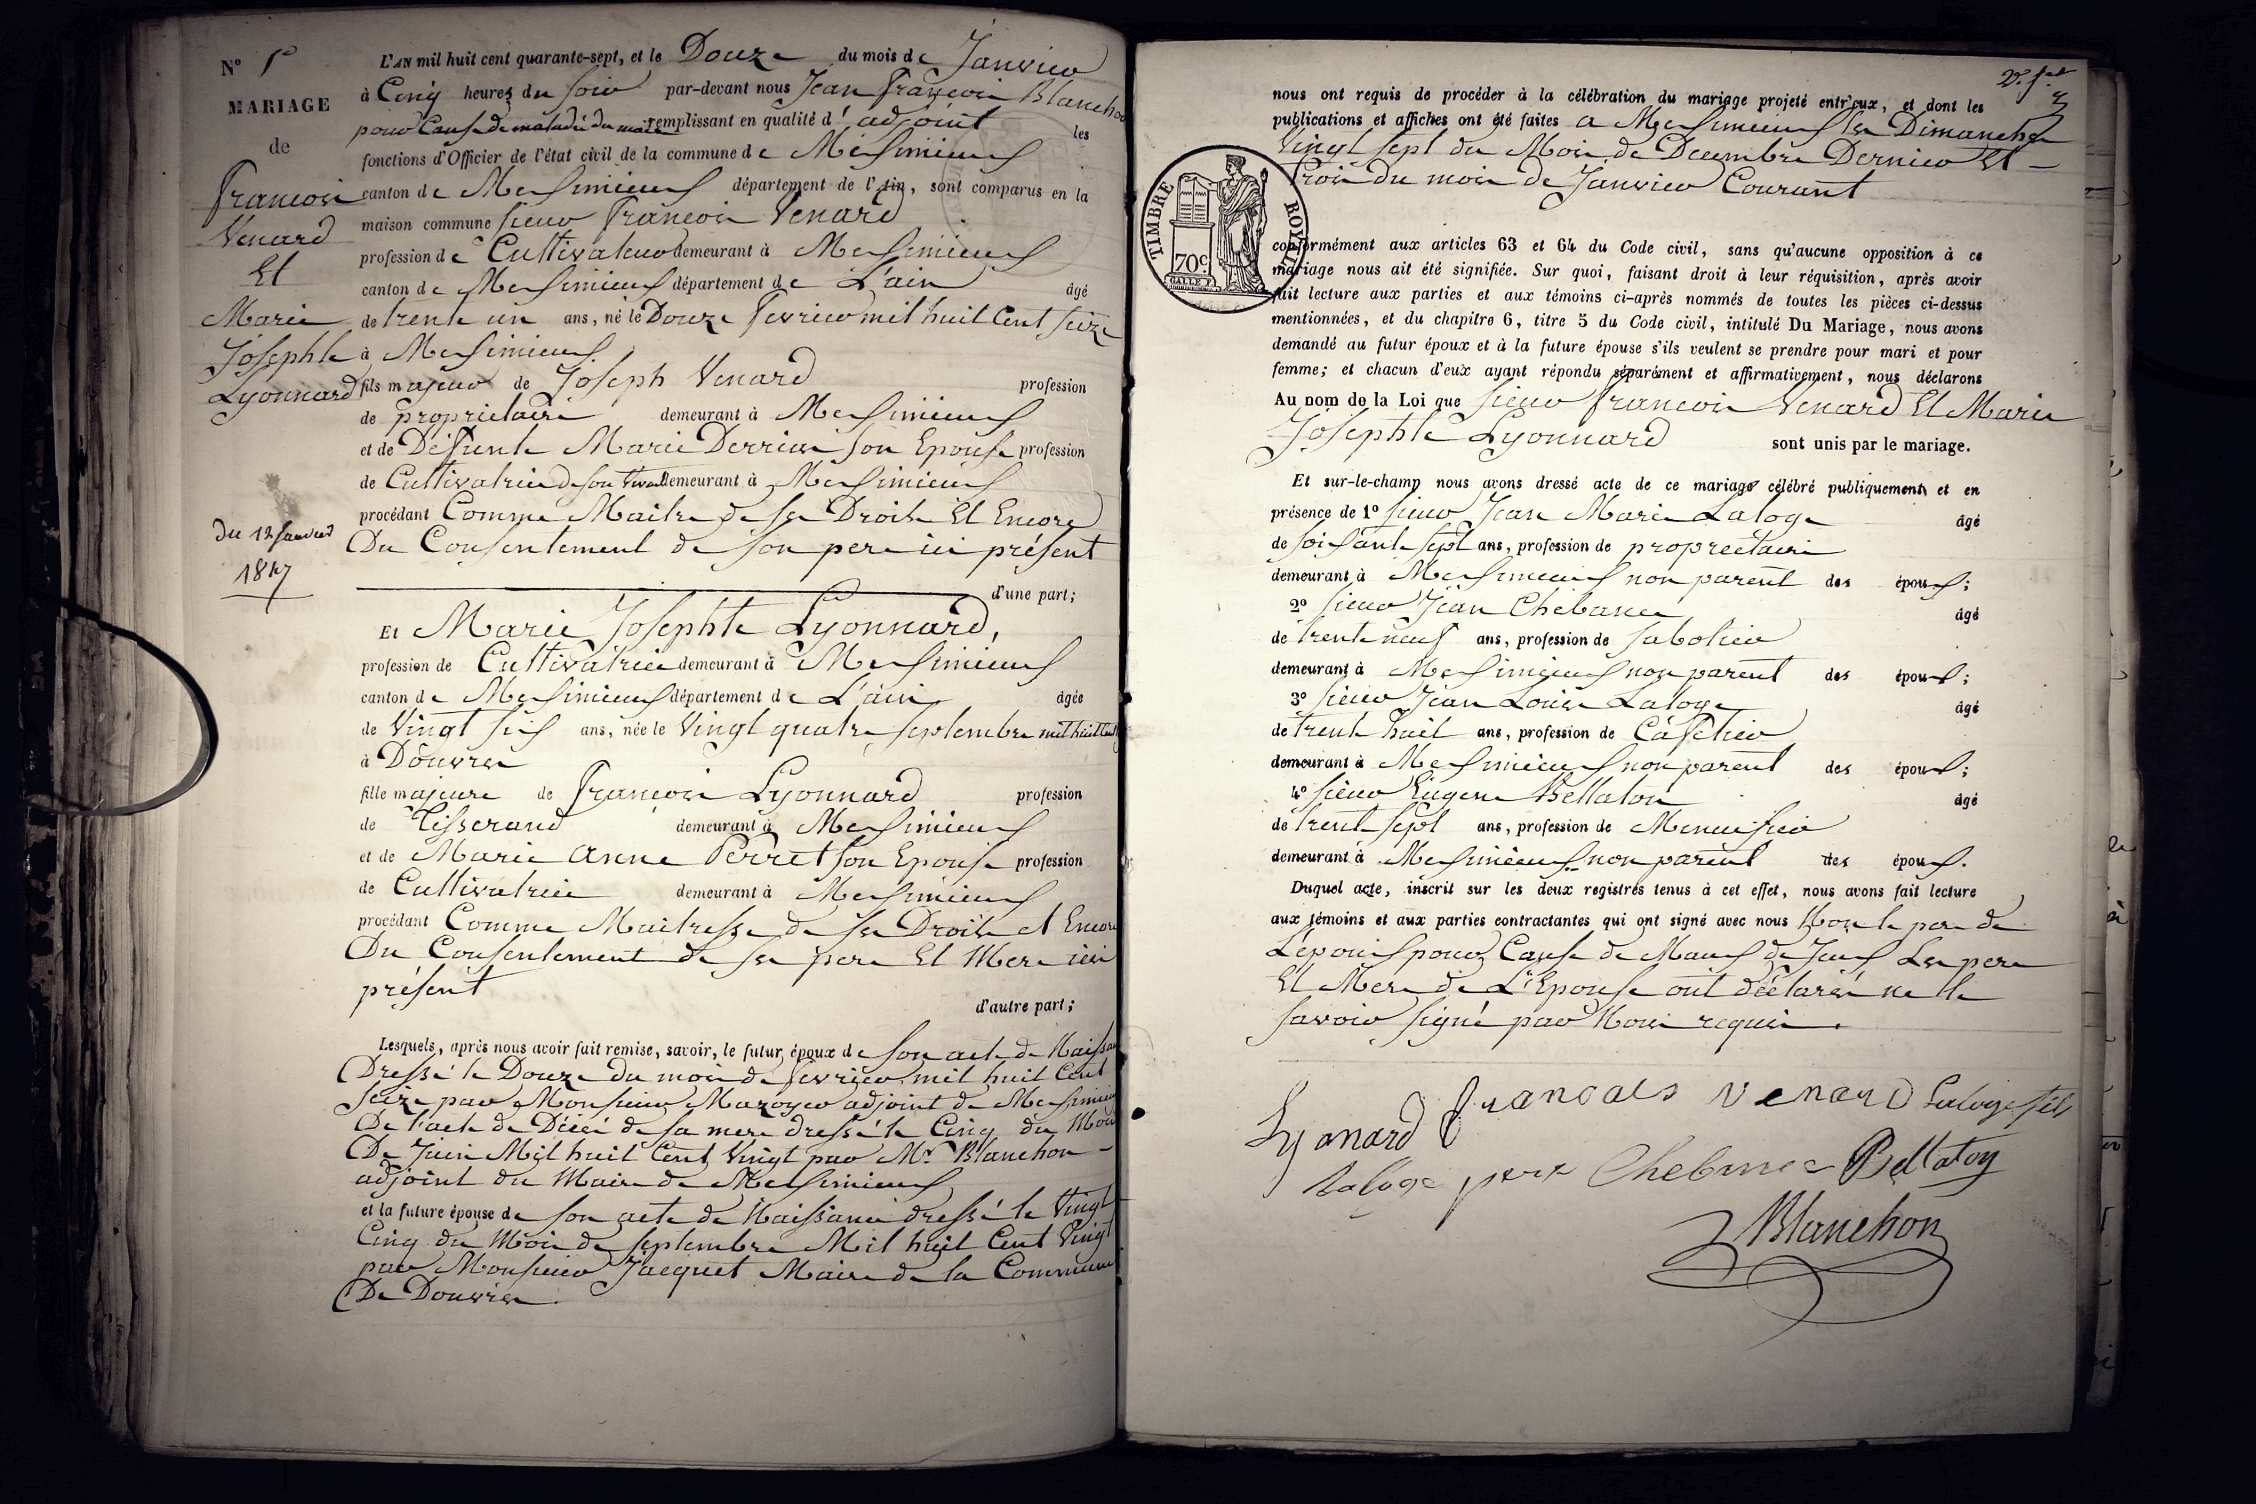 N° 1
MARIAGE
de
François
Venard
Et
Marie
Josephte
Lyonnard
du 12 Janvier
1847
L'AN mil huit cent quarante-sept, et le Douze du mois de Janvier
à Cinq heures du Soir par-devant nous Jean François Blanchon
pour Cause de maladie du maire remplissant en qualité d'adjoint les
fonctions d'Officier de l'état civil de la commune de Meximieux
canton de Meximieux département de l'Ain, sont comparus en la
maison commune Sieur François Venard
profession de Cultivateur demeurant à Meximieux
canton de Meximieux département de L'ain âgé
de trente un ans, né le Douze Fevrier mil huit Cent seize
à Meximieux
fils majeur de Joseph Venard profession
de propriétaire demeurant à Meximieux
et de Défunte Marie Derrias Son Epouse profession
de Cultivatrice de son vivant demeurant à Meximieux
procédant Comme Maitre de ses Droits Et Encore
Du Consentement de Son pere ici présent
d'une part;
Et Marie Josephte Lyonnard,
profession de Cultivatrice demeurant à Meximieux
canton de Meximieux département de L'ain âgée
de Vingt six ans, née le Vingt quatre septembre mil huit Cent
à Douvres
fille majeure de François Lyonnard profession
de Tisserand demeurant à Meximieux
et de Marie Anne Perret Son Epouse profession
de Cultivatrice demeurant à Meximieux
procédant Comme Maitresse de ses Droits et Encore
Du Consentement de ses pere Et Mere ici
présent
d'autre part;
Lesquels, après nous avoir fait remise, savoir, le futur époux de Son acte de Naissance
Dressé le Douze du mois de fevrier mil huit Cent
seize par Monsieur Mazoyer adjoint de Meximieux
De l'acte de Décé de sa mere dressé le Cinq du Mois
De Juin Mil huit Cent Vingt par Mr Blanchon
adjoint du Maire de Meximieux
et la future épouse de son acte de Naissance dressé le Vingt
Cinq du Mois de septembre Mil huit Cent Vingt
par Monsieur Jacquet Maire de la Commune
De Douvres
2e f.et
nous ont requis de procéder à la célébration du mariage projeté entr'eux, et dont les
publications et affiches ont été faites a Meximieux les Dimanche
Vingt sept du Mois de Decembre Dernier Et
Trois du mois de Janvier Courant
TIMBRE ROYAL
70c
conformément aux articles 63 et 64 du Code civil, sans qu'aucune opposition à ce
mariage nous ait été signifiée. Sur quoi, faisant droit à leur réquisition, après avoir
fait lecture aux parties et aux témoins ci-après nommés de toutes les pièces ci-dessus
mentionnées, et du chapitre 6, titre 5 du Code civil, intitulé Du Mariage, nous avons
demandé au futur époux et à la future épouse s'ils veulent se prendre pour mari et pour
femme; et chacun d'eux ayant répondu séparément et affirmativement, nous déclarons
Au nom de la Loi que Sieur François Venard Et Marie
Josephte Lyonnard sont unis par le mariage.
Et sur-le-champ nous avons dressé acte de ce mariage célébré publiquement et en
présence de 1° Sieur Jean Marie Laloge âgé
de Soixante Sept ans, profession de propriétaire
demeurant à Meximieux non parent des époux;
2° Sieur Jean Chebance âgé
de trente neuf ans, profession de Sabotier
demeurant à Meximieux non parent des époux;
3° Sieur Jean Louis Laloge âgé
de trente huit ans, profession de Cafetier
demeurant à Meximieux non parent des époux;
4° Sieur Eugene Bellaton âgé
de trente Sept ans, profession de Menuisier
demeurant à Meximieux non parent des époux.
Duquel acte, inscrit sur les deux registres tenus à cet effet, nous avons fait lecture
aux témoins et aux parties contractantes qui ont signé avec nous Non le pere de
L'époux pour Cause de Maux de Jeux Les pere
Et Mere de L'Epouse ont déclarés ne le
savoir signé par Nous requis.
Lyonard François Venard Laloge fils
Laloge pere Chebance Bellaton
Blanchon